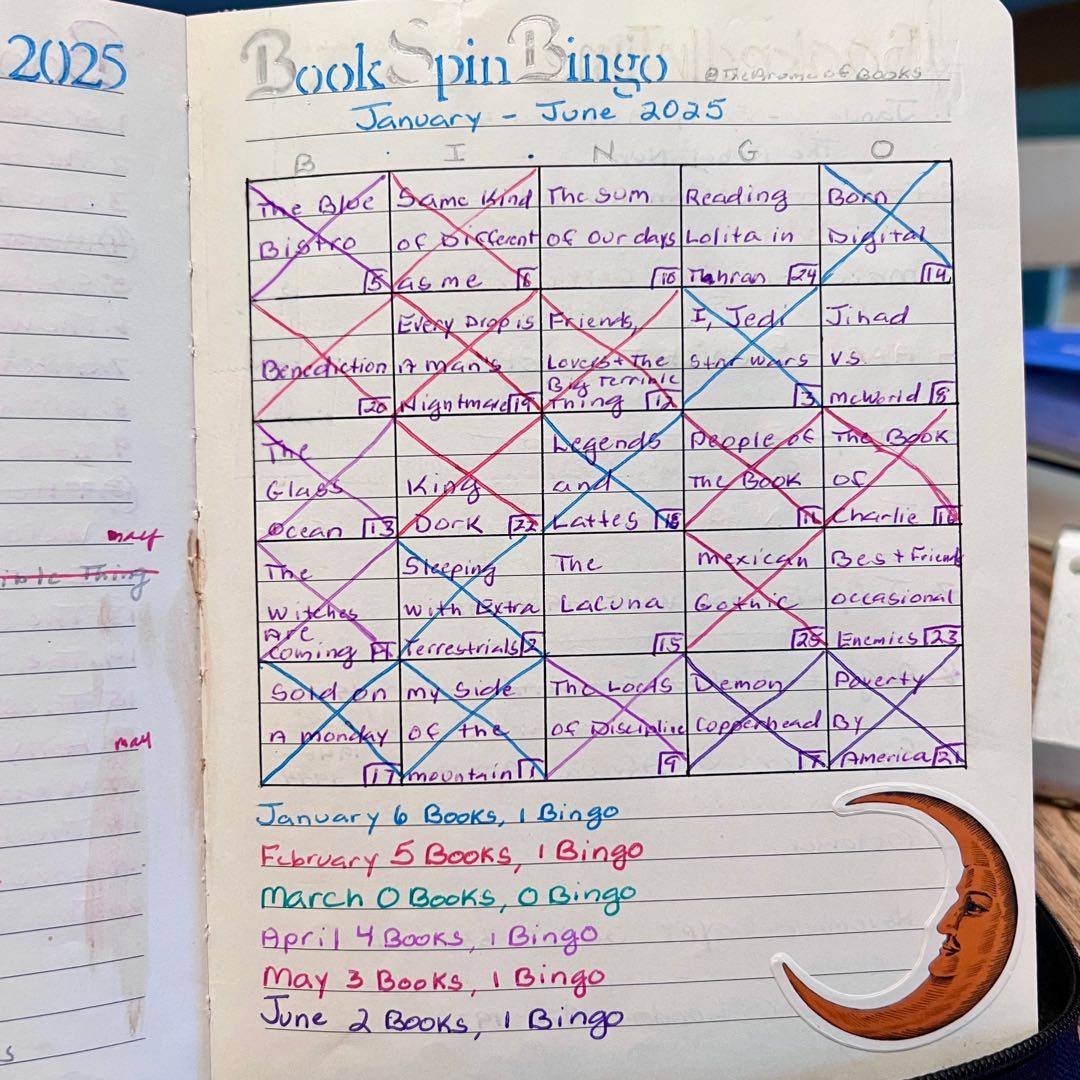 2025
Book Spin Bingo
@TheAromaofBooks
January - June 2025
B I N G O
The Blue Bistro 5
Same Kind of Different as me 6
The Sum of Our days 10
Reading Lolita in Tehran 24
Born Digital 14
Benediction 20
Every Drop is A man's Nightmare 19
Friends, Lovers + The Big Terrible Thing 12
I, Jedi Star Wars 3
Jihad vs. McWorld 8
The Glass Ocean 13
King Dork 22
Legends and Lattes 18
People of The Book
The Book of Charlie
The Witches Are Coming
Sleeping with Extra Terrestrials 2
The Lacuna 15
Mexican Gothic 25
Best Friends occasional Enemies 23
Sold on A monday 17
my Side of the mountain 1
The Lords of Discipline 9
Demon Copperhead
Poverty By America 21
January 6 Books, 1 Bingo
February 5 Books, 1 Bingo
March 0 Books, 0 Bingo
April 4 Books, 1 Bingo
May 3 Books, 1 Bingo
June 2 Books, 1 Bingo
may
Thing
may
s